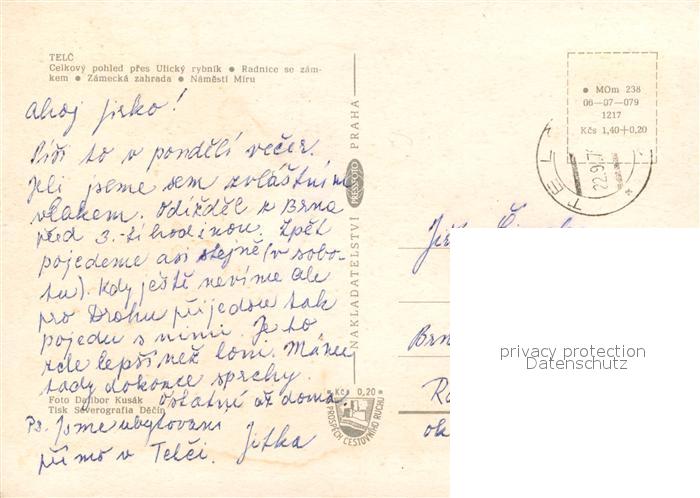 TELČ
Celkový pohled přes Ulický rybník ● Radnice se zám-
kem ● Zámecká zahrada ● Náměstí Míru
Ahoj Jirko!
Píši to v pondělí večer.
Jeli jsme sem zvláštním
vlakem. Odjížděl z Brna
před 3.-tí hodinou. Zpět
pojedeme asi stejně (v sobo-
tu). Když ještě nevíme ale
pro Drahu přijedou tak
pojedu s nimi. Je to
zde lepší než loni. Máme
tady dokonce sprchy.
Ostatní až doma.
Ps. Jsme ubytovani
přímo v Telči. Jitka
Foto Dalibor Kusák
Tisk Severografia Děčín
NAKLADATELSTVÍ PRESSFOTO PRAHA
● MOm 238
06-07-079
1217
Kčs 1,40+0,20
TELČ
22.9.7
Kčs 0,20
PROSPĚCH CESTOVNÍHO RUCHU
Brn
ok
privacy protection
Datenschutz